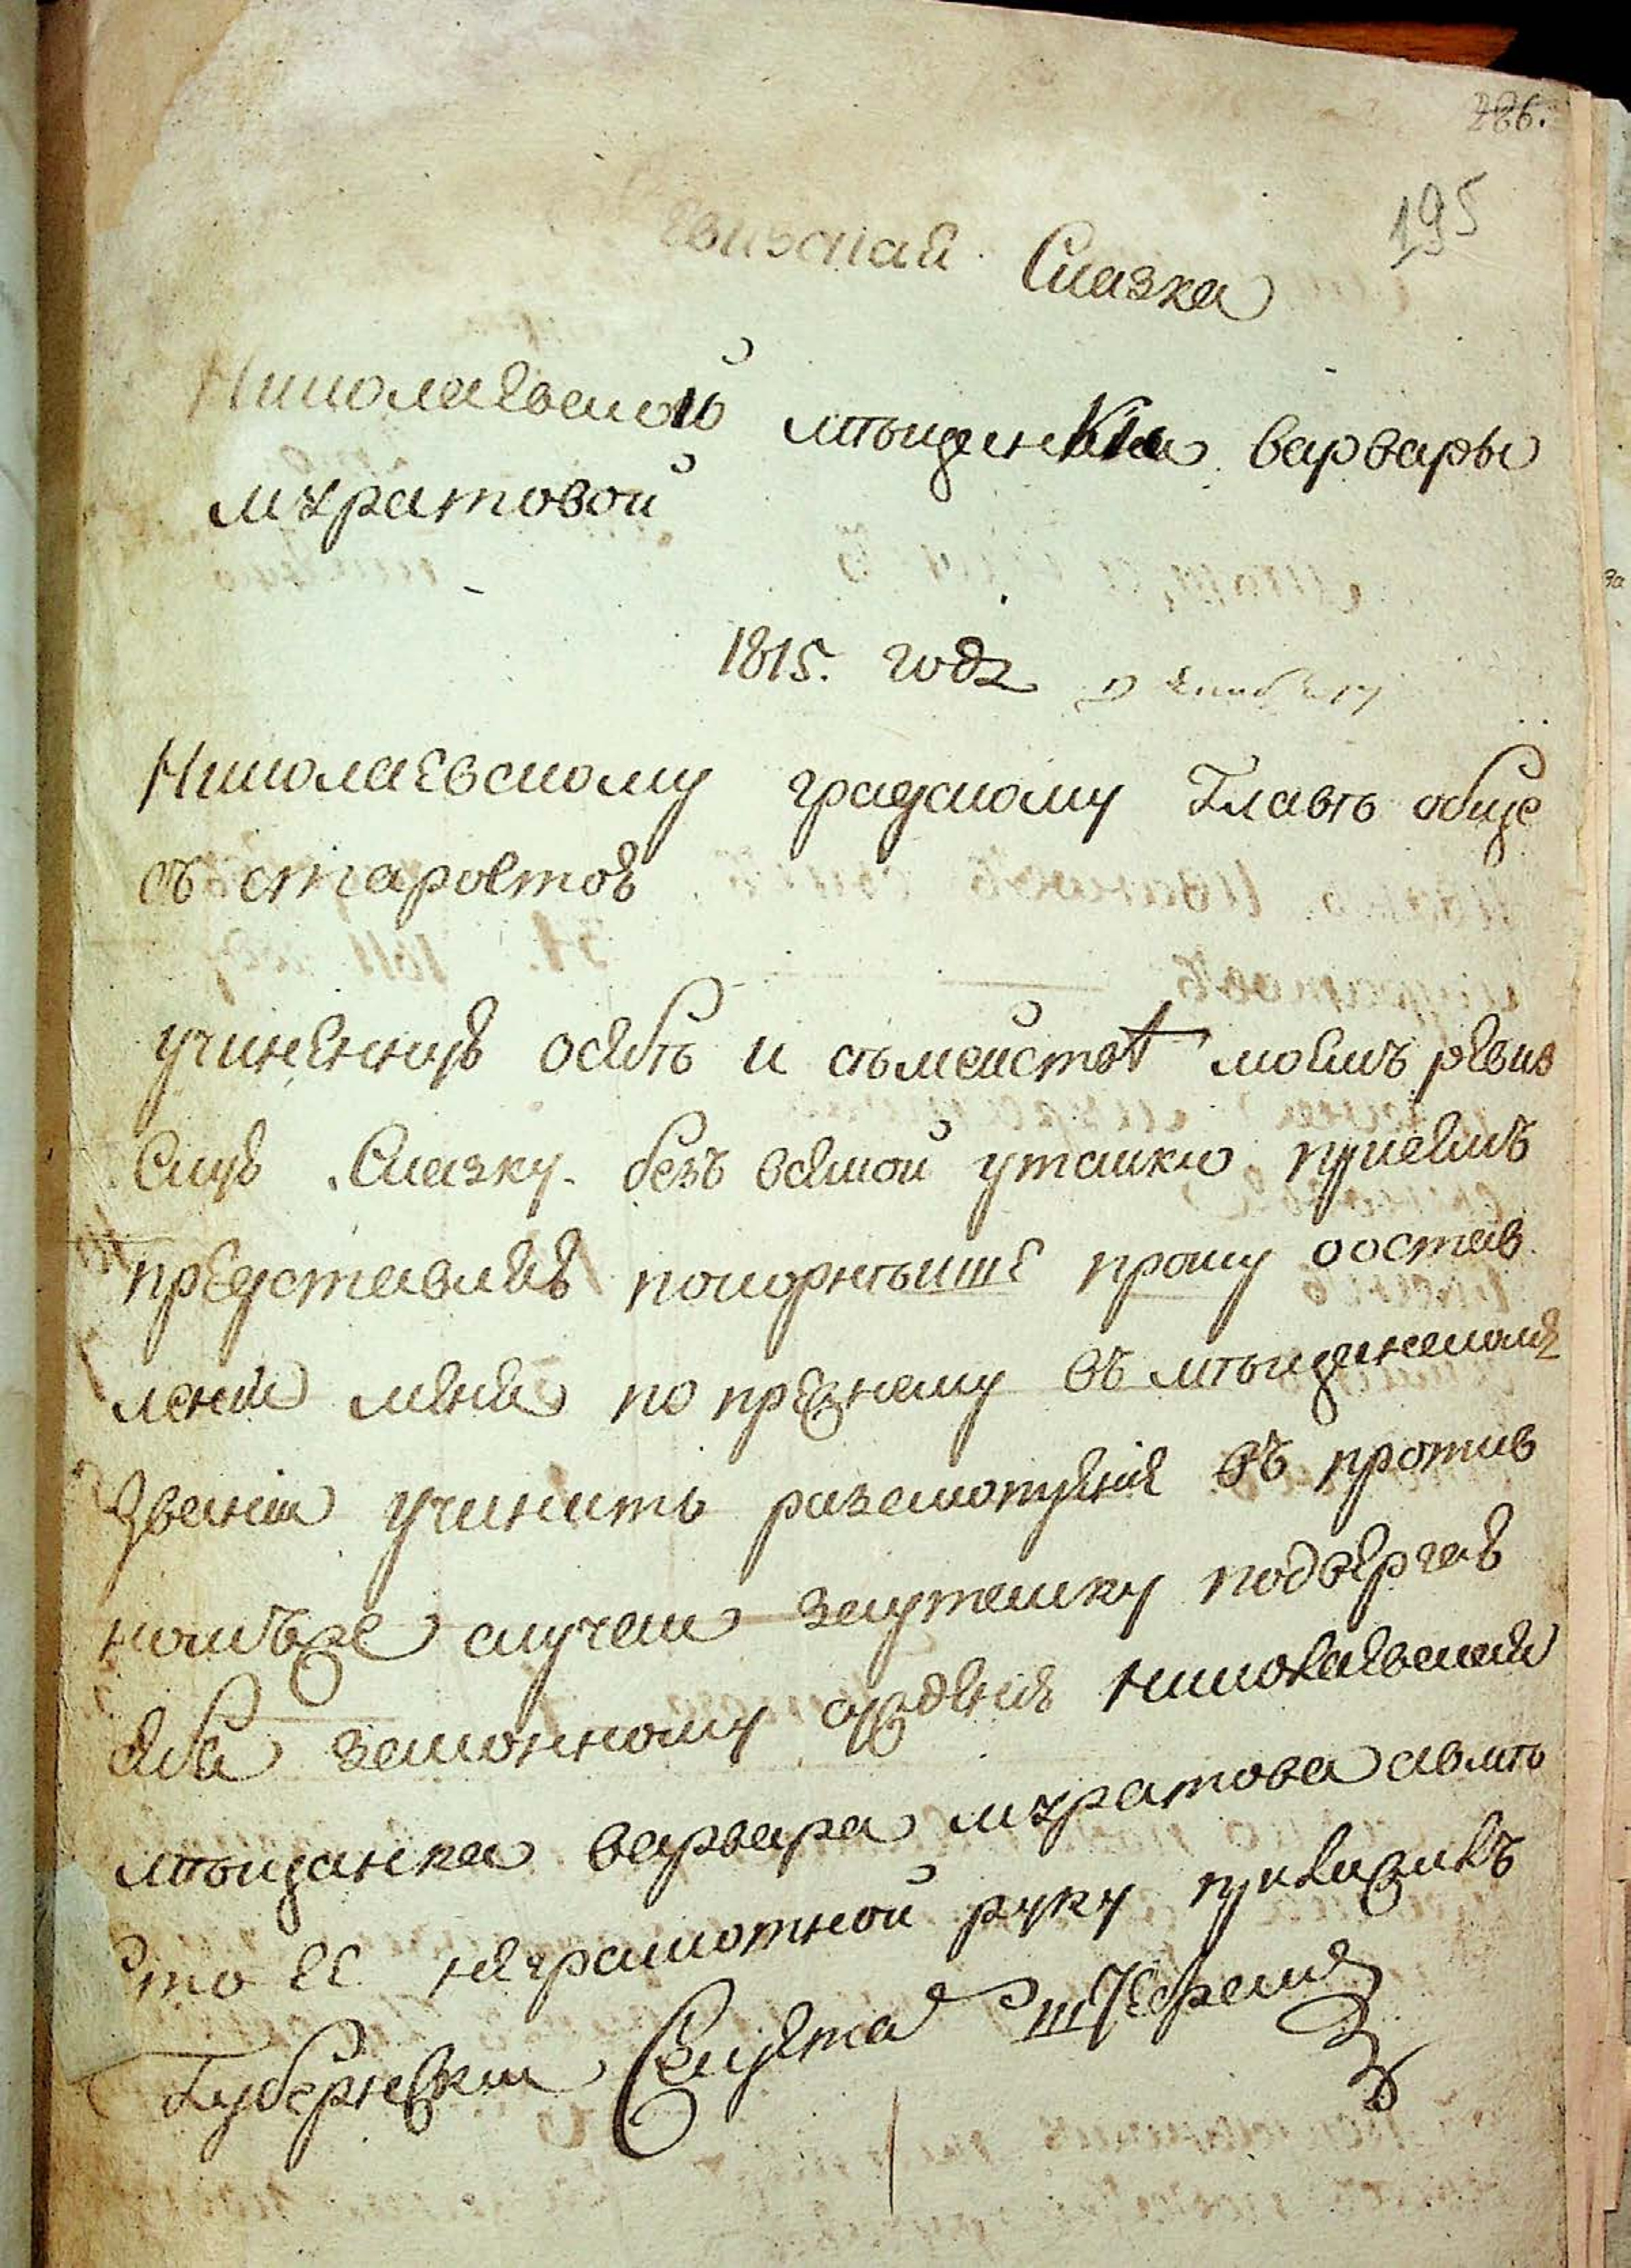 286.
195
Ревизская Сказка
Николаевской мѣщенки варвары
мȣратовой
1815. годȣ
Николаевскому градскому Главѣ обще
съ старостою
учиненную осебѣ и съмействѣ моемъ ревиз
скую Сказку. безъ всякой утаики приемъ
представляю покорнѣише прошу оостав
лении меня по прежнему въ мѣщенскомъ
звании учинить разсмотрение въ против
номъже случаи заутаику подвергаю
себя законному суждению николаевская
мѣщанка варвара мȣратова авмѣ
сто ее неграмотной руку приложилъ
Губернски Секрета